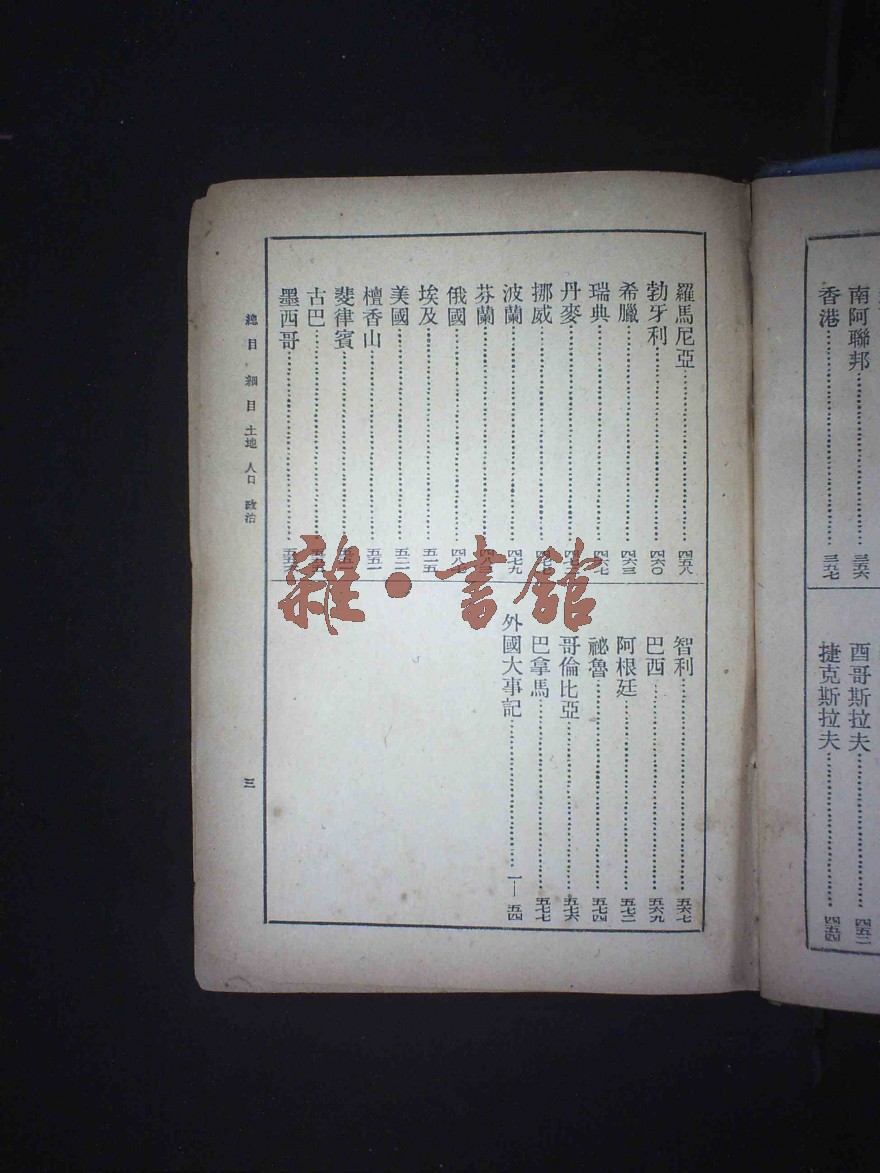 南阿聯邦……三五六
香港……三九七
酉哥斯拉夫……四五二
捷克斯拉夫……四五四
羅馬尼亞……四五八
勃牙利……四六〇
希臘……四六三
瑞典……四六七
丹麥……
挪威……
波蘭……四七九
芬蘭……
俄國……四八七
埃及……五一五
美國……五二一
檀香山……五五一
斐律賓……
古巴……
墨西哥……
智利……五六七
巴西……五六九
阿根廷……五七二
祕魯……五七四
哥倫比亞……五七六
巴拿馬……五七七
外國大事記……一—五四
總目 細目 土地 人口 政治
三
雜·書館